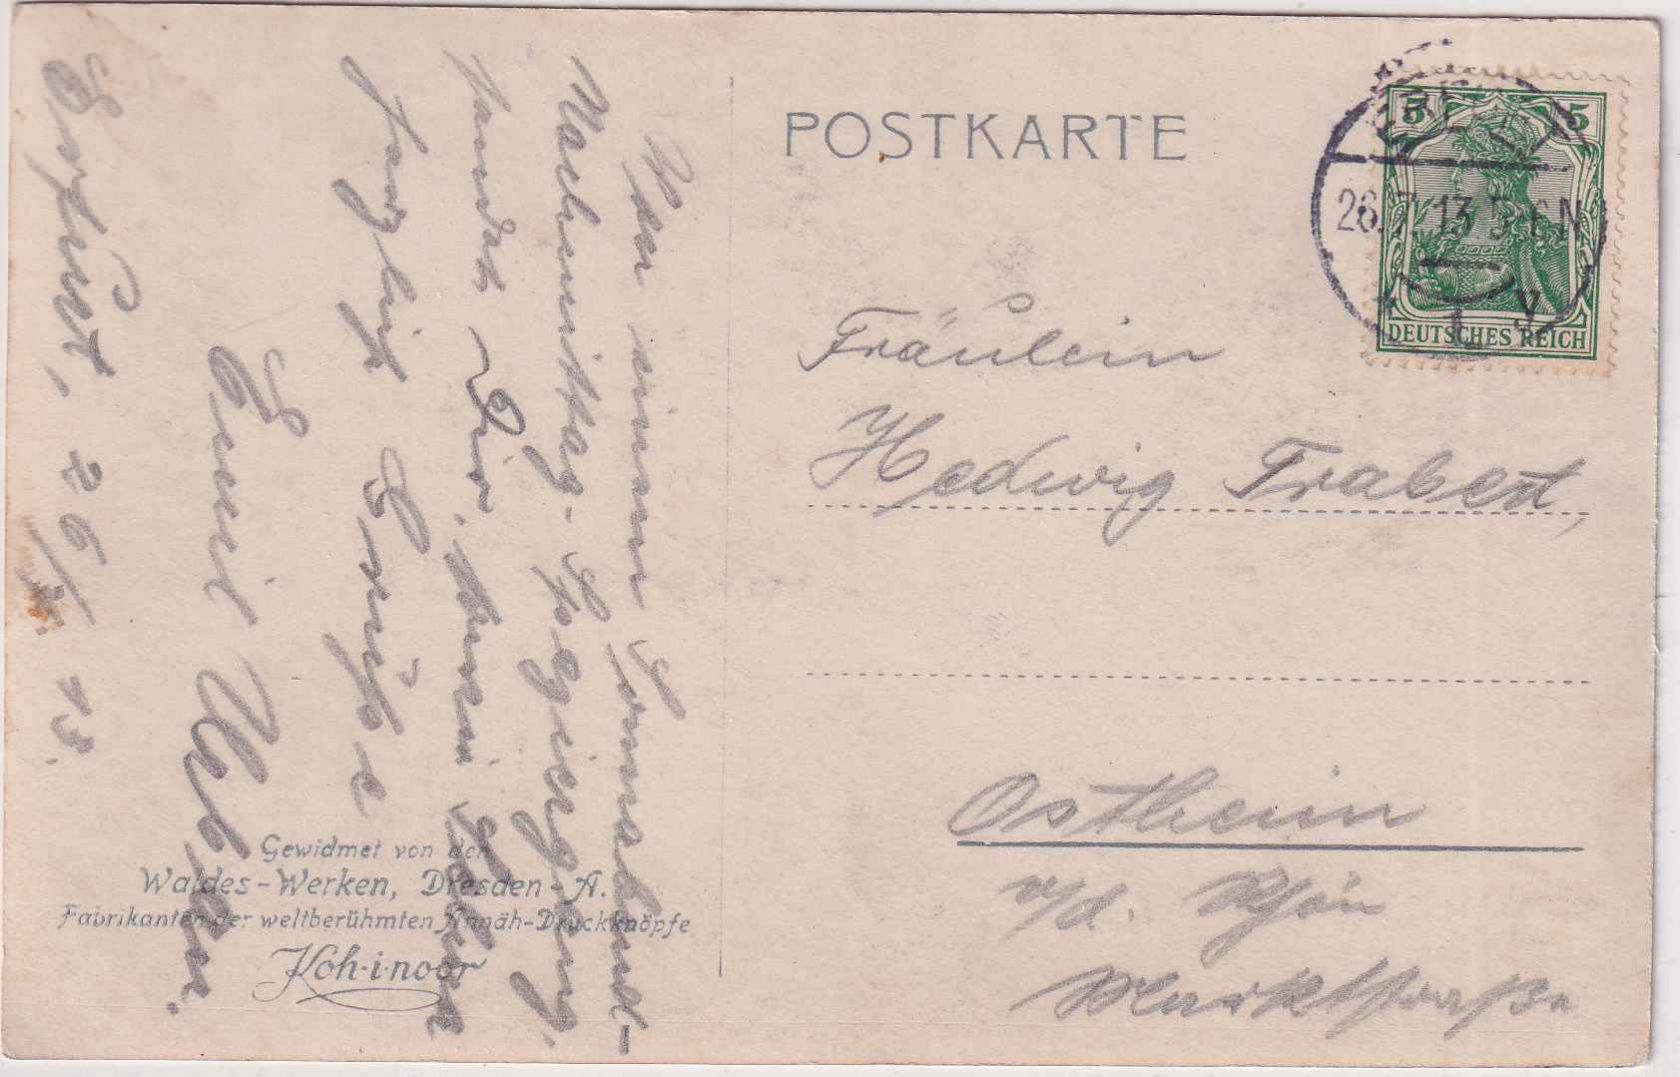 Von einem Sonnabend-
Nachmittag-Spaziergang,
sendet Dir, meine Liebe
herzlichste Grüße
Emil Urban.
Erfurt, 26/7. 13.
Gewidmet von den
Waldes-Werken, Dresden-A.
Fabrikanten der weltberühmten Annäh-Druckknöpfe
Koh-i-noor
POSTKARTE
5 5
DEUTSCHES REICH
26.7.13 5-6N
Fräulein
Hedwig Trabert,
Ostheim
v/d. Rhön
Marktstraße